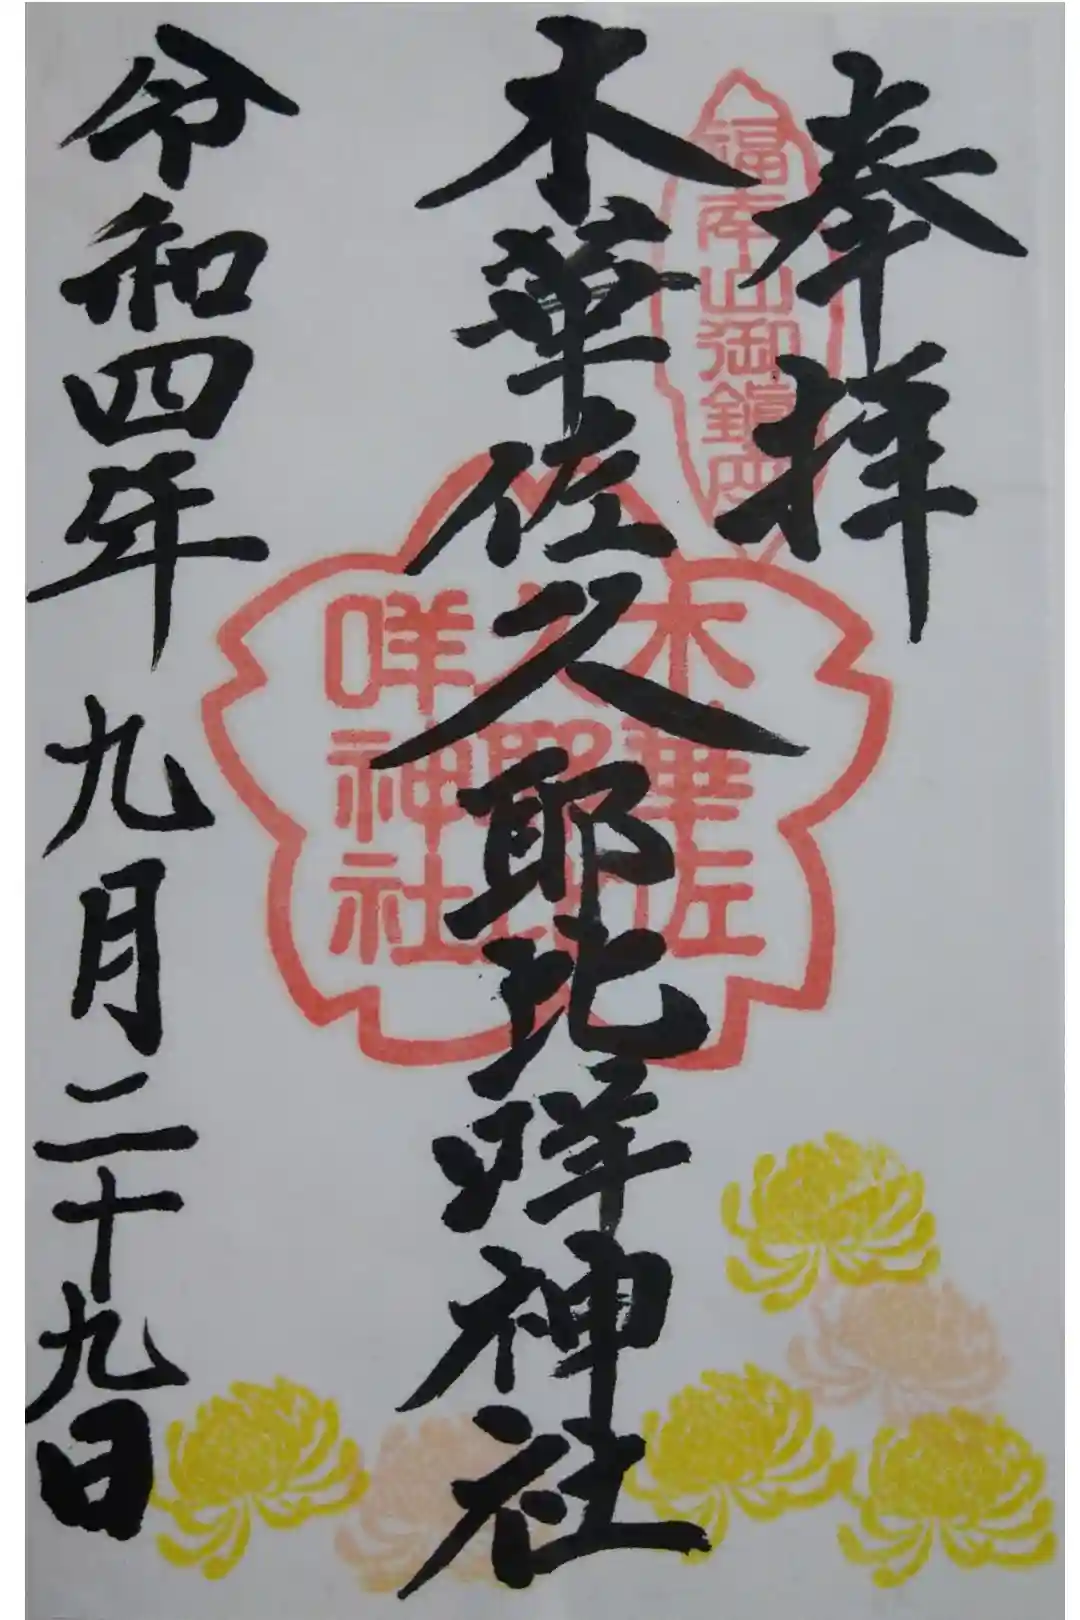 奉拝
福幸山御鎮座
木華佐久耶比咩神社
木華佐
久耶比
咩神社
令和四年 九月二十九日